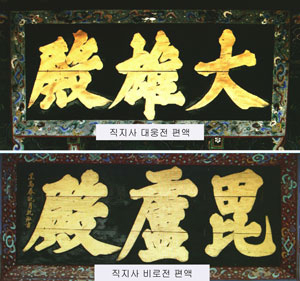 大雄殿
직지사 대웅전 편액
毘盧殿
직지사 비로전 편액